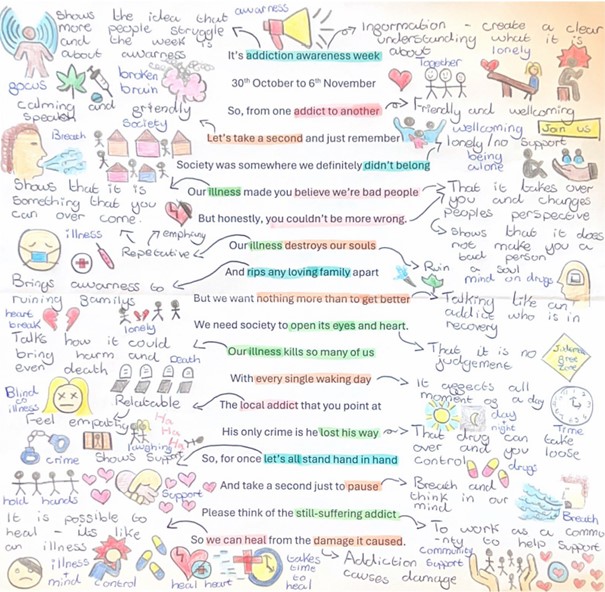 Shows the idea that
more people struggle
and the week is
about awarness
awarness
Information - create a clear
understanding what it is
about
lonely
It's addiction awareness week
focus
broken
brain
Together
30th October to 6th November
calming and friendly
speaker
So, from one addict to another
Friendly and wellcoming
Society
Breath
Let's take a second and just remember
wellcoming
Join us
lonely/no support
being
alone
Society was somewhere we definitely didn't belong
Shows that it is
Something that you
can over come.
Our illness made you believe we're bad people
That it takes over
you and changes
peoples perspective
But honestly, you couldn't be more wrong.
illness
emphiny
Repetative
Shows that it does
not make you a
bad person
Our illness destroys our souls
Ruin a soul
mind on drugs
And rips any loving family apart
Brings awarness to
ruining familys
But we want nothing more than to get better
Talking like an
addict who is in
recovery
heart
break
lonely
We need society to open its eyes and heart.
Talks how it could
bring harm and
even death
Death
Our illness kills so many of us
That it is no
judgement
Judgment
free
zone
With every single waking day
It affects all
moment of a day
Blind
to
illness
Relatable
The local addict that you point at
day
night
Time
Feel empathy
Ha
Ha
Ha
laughing
His only crime is he lost his way
That drug can take
over and you loose
control
drugs
crime
Shows support
So, for once let's all stand hand in hand
hold hands
Support
And take a second just to pause
Breath and
think in our
mind
Breath
It is possible to
heal - its like
an illness
Please think of the still-suffering addict.
To work as a commu
-nty to help support
So we can heal from the damage it caused.
illness
mind
control
heal heart
takes
time
to
heal
Addiction
causes damage
community
support